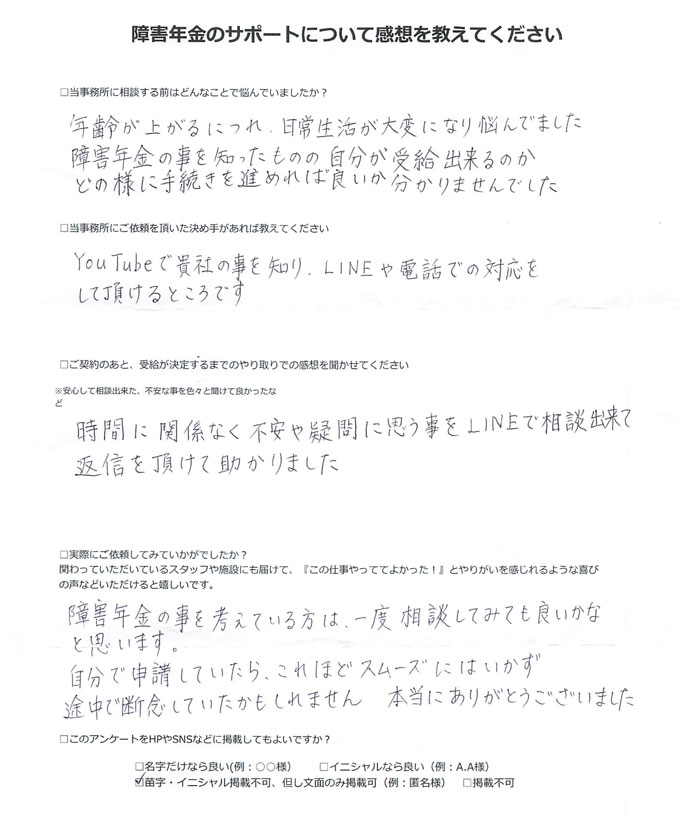 障害年金のサポートについて感想を教えてください
□当事務所に相談する前はどんなことで悩んでいましたか？
年齢が上がるにつれ、日常生活が大変になり悩んでました
障害年金の事を知ったものの自分が受給出来るのか
どの様に手続きを進めれば良いか分かりませんでした
□当事務所にご依頼を頂いた決め手があれば教えてください
YouTubeで貴社の事を知り、LINEや電話での対応を
して頂けるところです
□ご契約のあと、受給が決定するまでのやり取りでの感想を聞かせてください
※安心して相談出来た、不安な事を色々と聞けて良かったな
ど
時間に関係なく不安や疑問に思う事をLINEで相談出来て
返信を頂けて助かりました
□実際にご依頼してみていかがでしたか？
関わっていただいているスタッフや施設にも届けて、『この仕事やっててよかった！』とやりがいを感じれるような喜び
の声などいただけると嬉しいです。
障害年金の事を考えている方は、一度相談してみても良いかな
と思います。
自分で申請していたら、これほどスムーズにはいかず
途中で断念していたかもしれません　本当にありがとうございました
□このアンケートをHPやSNSなどに掲載してもよいですか？
□名字だけなら良い(例：〇〇様）　□イニシャルなら良い（例：A.A様）
☑苗字・イニシャル掲載不可、但し文面のみ掲載可（例：匿名様）　□掲載不可